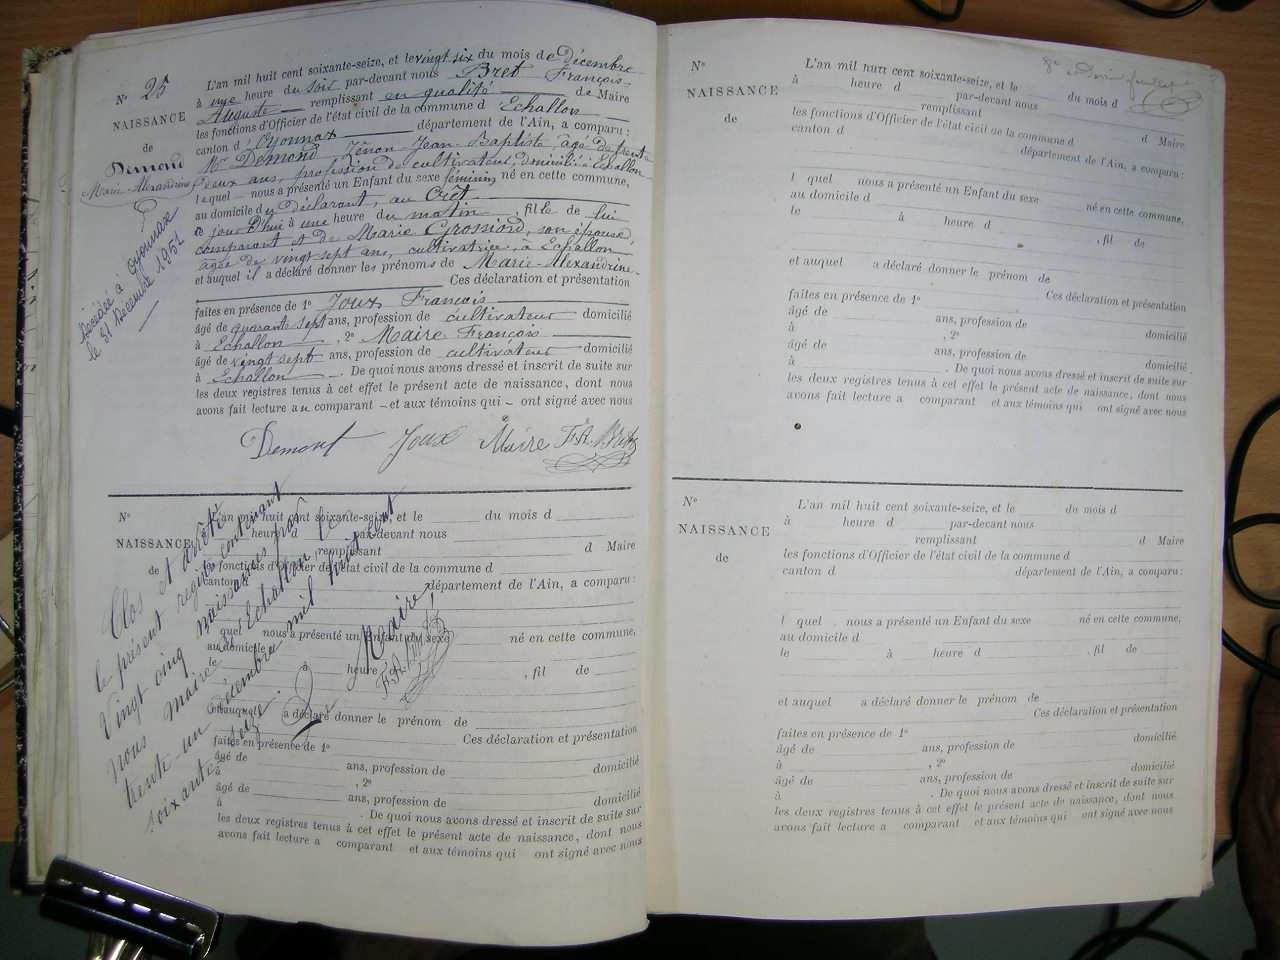 N° 25
NAISSANCE
de
Demond
Marie-Alexandrine
Décédée à Oyonnax
le 31 Décembre 1951
L'an mil huit cent soixante-seize, et le vingt six du mois de Décembre
à une heure du soir par-devant nous Bret François-
Auguste remplissant en qualité de Maire
les fonctions d'Officier de l'état civil de la commune d'Echallon
canton d'Oyonnax département de l'Ain, a comparu :
Mr Demond Zénon Jean-Baptiste, âgé de trente
deux ans, profession de cultivateur, domicilié à Echallon
lequel nous a présenté un Enfant du sexe féminin, né en cette commune,
au domicile du Déclarant, au Crêt
ce jourd'hui à une heure du matin, fille de lui
comparant et de Marie Grossiord, son épouse,
âgée de vingt sept ans, cultivatrice, à Echallon
et auquel il a déclaré donner les prénoms de Marie-Alexandrine.
Ces déclaration et présentation
faites en présence de 1° Joux François
âgé de quarante sept ans, profession de cultivateur domicilié
à Echallon, 2° Maire François
âgé de vingt sept ans, profession de cultivateur domicilié
à Echallon. De quoi nous avons dressé et inscrit de suite sur
les deux registres tenus à cet effet le présent acte de naissance, dont nous
avons fait lecture au comparant et aux témoins qui ont signé avec nous
Demont Joux Maire F.A. Bret
N°
NAISSANCE
de
L'an mil huit cent soixante-seize, et le du mois d
à heure d par-devant nous
remplissant d Maire
les fonctions d'Officier de l'état civil de la commune d
canton d département de l'Ain, a comparu :
l quel nous a présenté un Enfant du sexe né en cette commune,
au domicile d
le à heure , fil de
et auquel a déclaré donner le prénom de
Ces déclaration et présentation
faites en présence de 1°
âgé de ans, profession de domicilié
à , 2°
âgé de ans, profession de domicilié
à . De quoi nous avons dressé et inscrit de suite sur
les deux registres tenus à cet effet le présent acte de naissance, dont nous
avons fait lecture a comparant et aux témoins qui ont signé avec nous
Clos et arrêté
le présent registre contenant
Vingt cinq naissances par
Nous Maire d'Echallon le
trente-un décembre mil huit cent
soixante seize.
Maire,
F.A. Bret
N°
NAISSANCE
de
L'an mil huit cent soixante-seize, et le du mois d
à heure d par-devant nous
remplissant d Maire
les fonctions d'Officier de l'état civil de la commune d
canton d département de l'Ain, a comparu :
l quel nous a présenté un Enfant du sexe né en cette commune,
au domicile d
le à heure d , fil de
et auquel a déclaré donner le prénom de
Ces déclaration et présentation
faites en présence de 1°
âgé de ans, profession de domicilié
à , 2°
âgé de ans, profession de domicilié
à . De quoi nous avons dressé et inscrit de suite sur
les deux registres tenus à cet effet le présent acte de naissance, dont nous
avons fait lecture a comparant et aux témoins qui ont signé avec nous
N°
NAISSANCE
de
L'an mil huit cent soixante-seize, et le du mois d
à heure d par-devant nous
remplissant d Maire
les fonctions d'Officier de l'état civil de la commune d
canton d département de l'Ain, a comparu :
l quel nous a présenté un Enfant du sexe né en cette commune,
au domicile d
le à heure d , fil de
et auquel a déclaré donner le prénom de
Ces déclaration et présentation
faites en présence de 1°
âgé de ans, profession de domicilié
à , 2°
âgé de ans, profession de domicilié
à . De quoi nous avons dressé et inscrit de suite sur
les deux registres tenus à cet effet le présent acte de naissance, dont nous
avons fait lecture a comparant et aux témoins qui ont signé avec nous